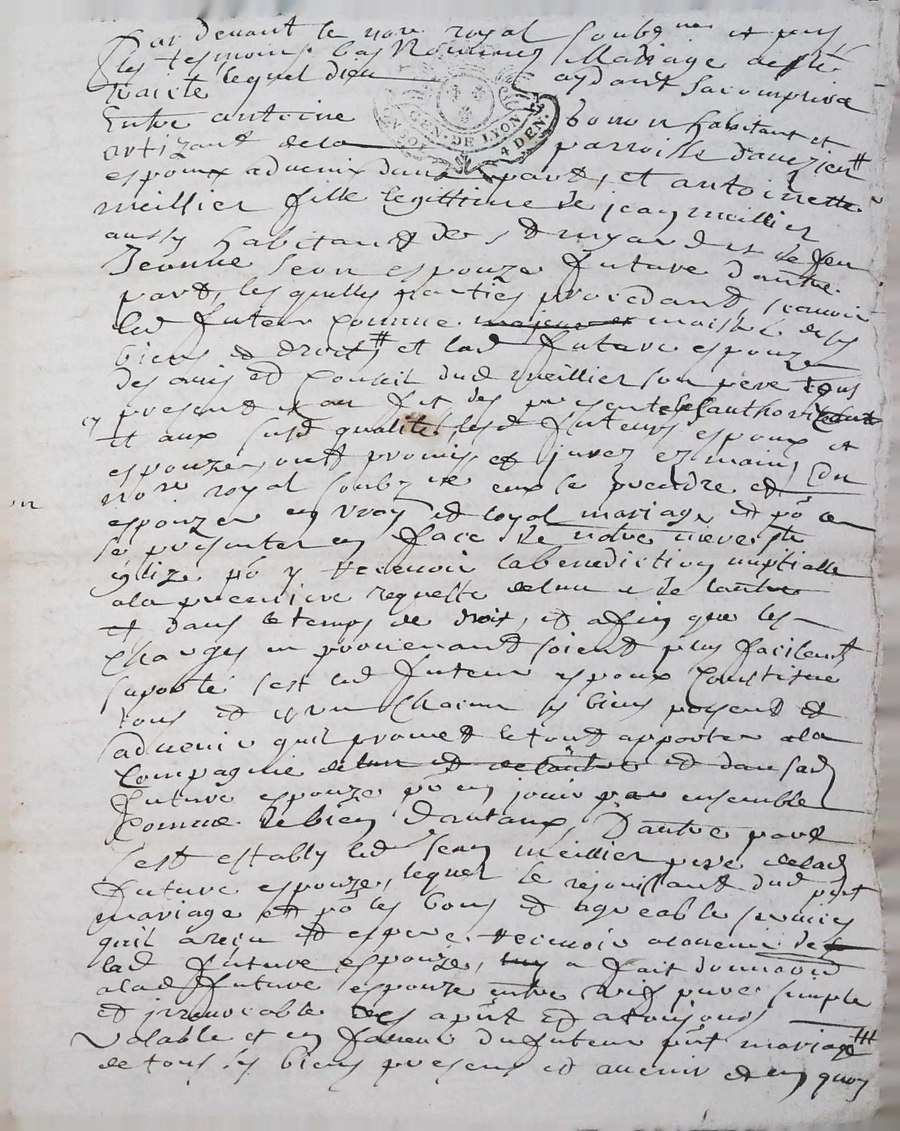 Par devant le nore royal soubz.ne et pns
les tesmoins bas nommes Mariage
traicte lequel dieu aydant sacomplira
Entre antoine bonon habitant et
artizant dela parroisse d'auezieu #
espoux aduenir dune part, et antoinette
meillier fille legittime de jean meillier
aussy habitant de st et de feu
Jeanne seon espouze future d'autre
part, les quelles parties procedant, scauoir
led futeur comme maistre de ses
biens et droits # et lad future espouze
des auis et conseil dud meillier son pere
present et lauthorizant
et aux susd qualites, lesd futeurs espoux et
espouze, ont promis et jurez ez mains du
nore royal soubz.ne eux se prendre et
espouzer en vray et loyal mariage et po ce
se presenter en face de notre mere ste
eglize po y receuoir la benediction nuptialle
ala premiere requeste delun u de lautre
et dans le temps de droit, et afin que les
charges en prouenant soient plus facilemt
suporté sest led futeur espoux constitué
tous et un chacun ses biens presents et
aduenir quil promet le tout apporter ala
compagnie delun et de lautre et dansad
future espouze po en jouir par ensemble
comme de bien dotaux, D'autre part
sest estably led Jean meillier pere delad
future espouze, lequel se rejouissant dud pnt
mariage et po les bons et agreables seruices
quil a receu et espere receuoir aladuenir de
lad future espouze, a fait donnaon
alad future espouze entre vifs pure simple
et irreuocable des apnt et atousjours
Valable et en faueur du futeur pnt mariage #
de tous ses biens presens et auenir et en quoy
GEN. DE LYON
4 DEN.